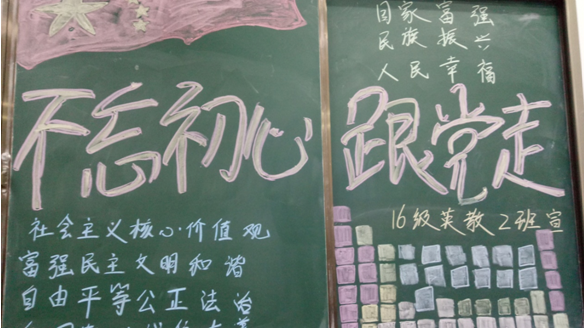 国家富强
民族振兴
人民幸福
不忘初心 跟党走
16级英教2班宣
社会主义核心·价值观
富强民主文明和谐
自由平等公正法治